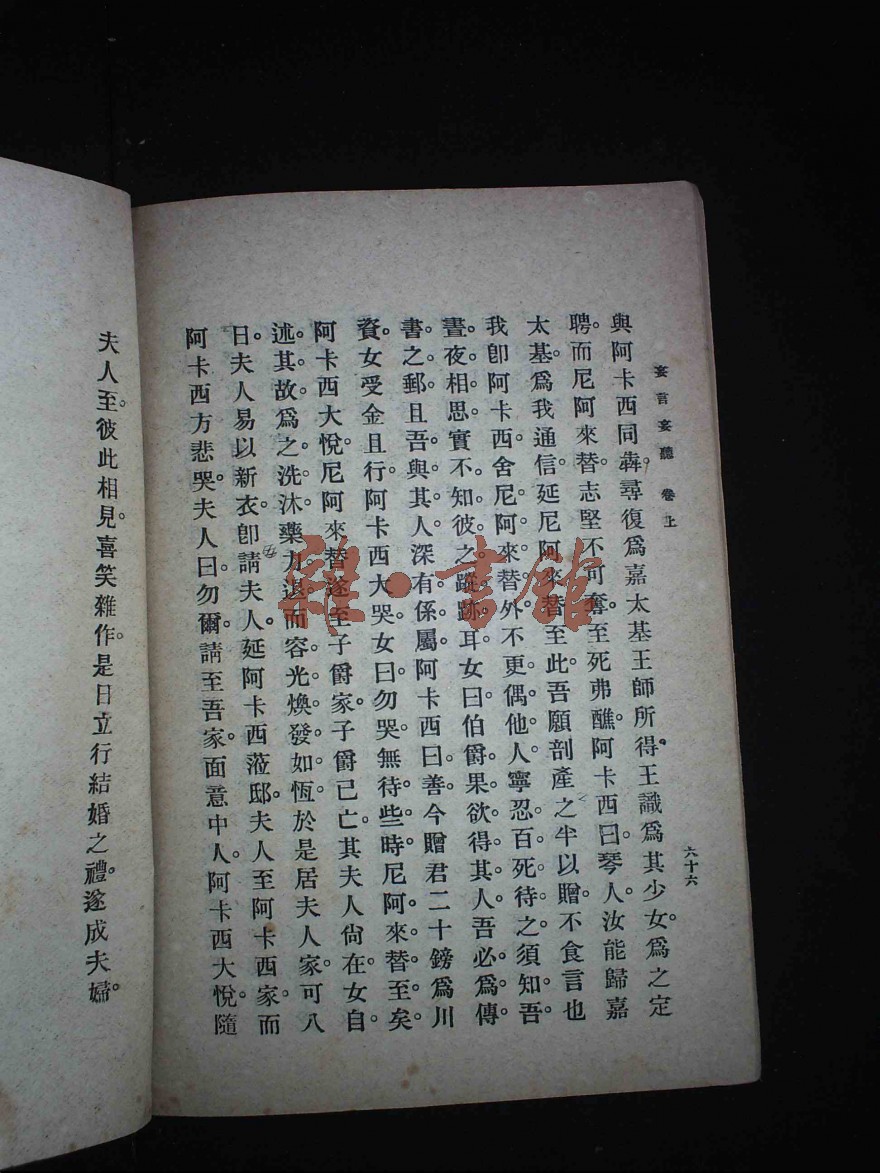 妄言妄聽 卷上
六十六
與阿卡西同犇。尋復爲嘉太基王師所得。王識爲其少女。爲之定
聘。而尼阿來替志堅不可奪。至死弗醮。阿卡西曰。琴人。汝能歸嘉
太基。爲我通信。延尼阿來替至此。吾願剖產之半以贈。不食言也。
我卽阿卡西。舍尼阿來替外。不更偶他人。寧忍百死待之。須知吾
晝夜相思。實不知彼之蹤跡耳。女曰。伯爵果欲得其人。吾必爲傳
書之郵。且吾與其人深有係屬。阿卡西曰。善。今贈君二十鎊爲川
資。女受金且行。阿卡西大哭。女曰。勿哭。無待些時。尼阿來替至矣。
阿卡西大悅。尼阿來替遂至子爵家。子爵已亡。其夫人尙在。女自
述其故。爲之洗沐。藥力退而容光煥發如恆。於是居夫人家。可八
日。夫人易以新衣。卽請夫人延阿卡西蒞邸。夫人至阿卡西家。而
阿卡西方悲哭。夫人曰。勿爾。請至吾家。面意中人。阿卡西大悅。隨
夫人至。彼此相見。喜笑雜作。是日立行結婚之禮。遂成夫婦。
雜·書館